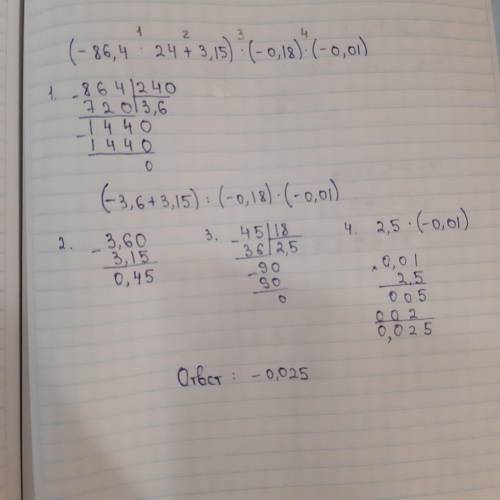 1 2 3 4
(-86,4 : 24 + 3,15) : (-0,18) · (-0,01)
1. -864 | 240
720 | 3,6
-1440
1440
0
(-3,6+3,15) : (-0,18) · (-0,01)
2. -3,60
3,15
0,45
3. -45 | 18
36 | 2,5
-90
90
0
4. 2,5 · (-0,01)
×0,01
2,5
005
002
0,025
Ответ : -0,025